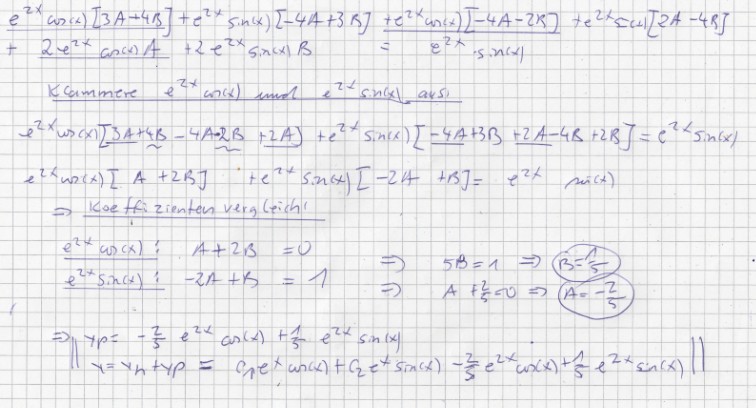 e^2x cos(x) [3A+4B] + e^2x sin(x) [-4A+3B] + e^2x cos(x) [-4A-2B] + e^2x sin(x) [2A-4B]
+ 2e^2x cos(x) A + 2e^2x sin(x) B = e^2x · sin(x)
Klammere e^2x cos(x) und e^2x sin(x) aus:
e^2x cos(x) [3A+4B -4A-2B +2A] + e^2x sin(x) [-4A+3B +2A-4B+2B] = e^2x sin(x)
e^2x cos(x) [ A +2B] + e^2x sin(x) [-2A +B] = e^2x sin(x)
⇒ Koeffizientenvergleich:
e^2x cos(x): A+2B = 0 ⇒ 5B=1 ⇒ B=1/5
e^2x sin(x): -2A+B = 1 ⇒ A+2/5=0 ⇒ A=-2/5
⇒ yp = -2/5 e^2x cos(x) + 1/5 e^2x sin(x)
y = yh+yp = C1e^x cos(x) + C2e^x sin(x) - 2/5 e^2x cos(x) + 1/5 e^2x sin(x)